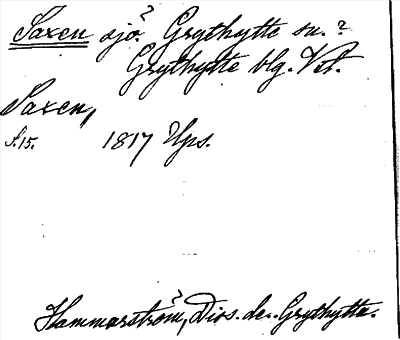 Saxen sjö? Grythytte sn.?
Grythytte blg. Vstm.
Saxen,
S. 15. 1817 Ups.
Hammarström, Diss. de Grythytta.